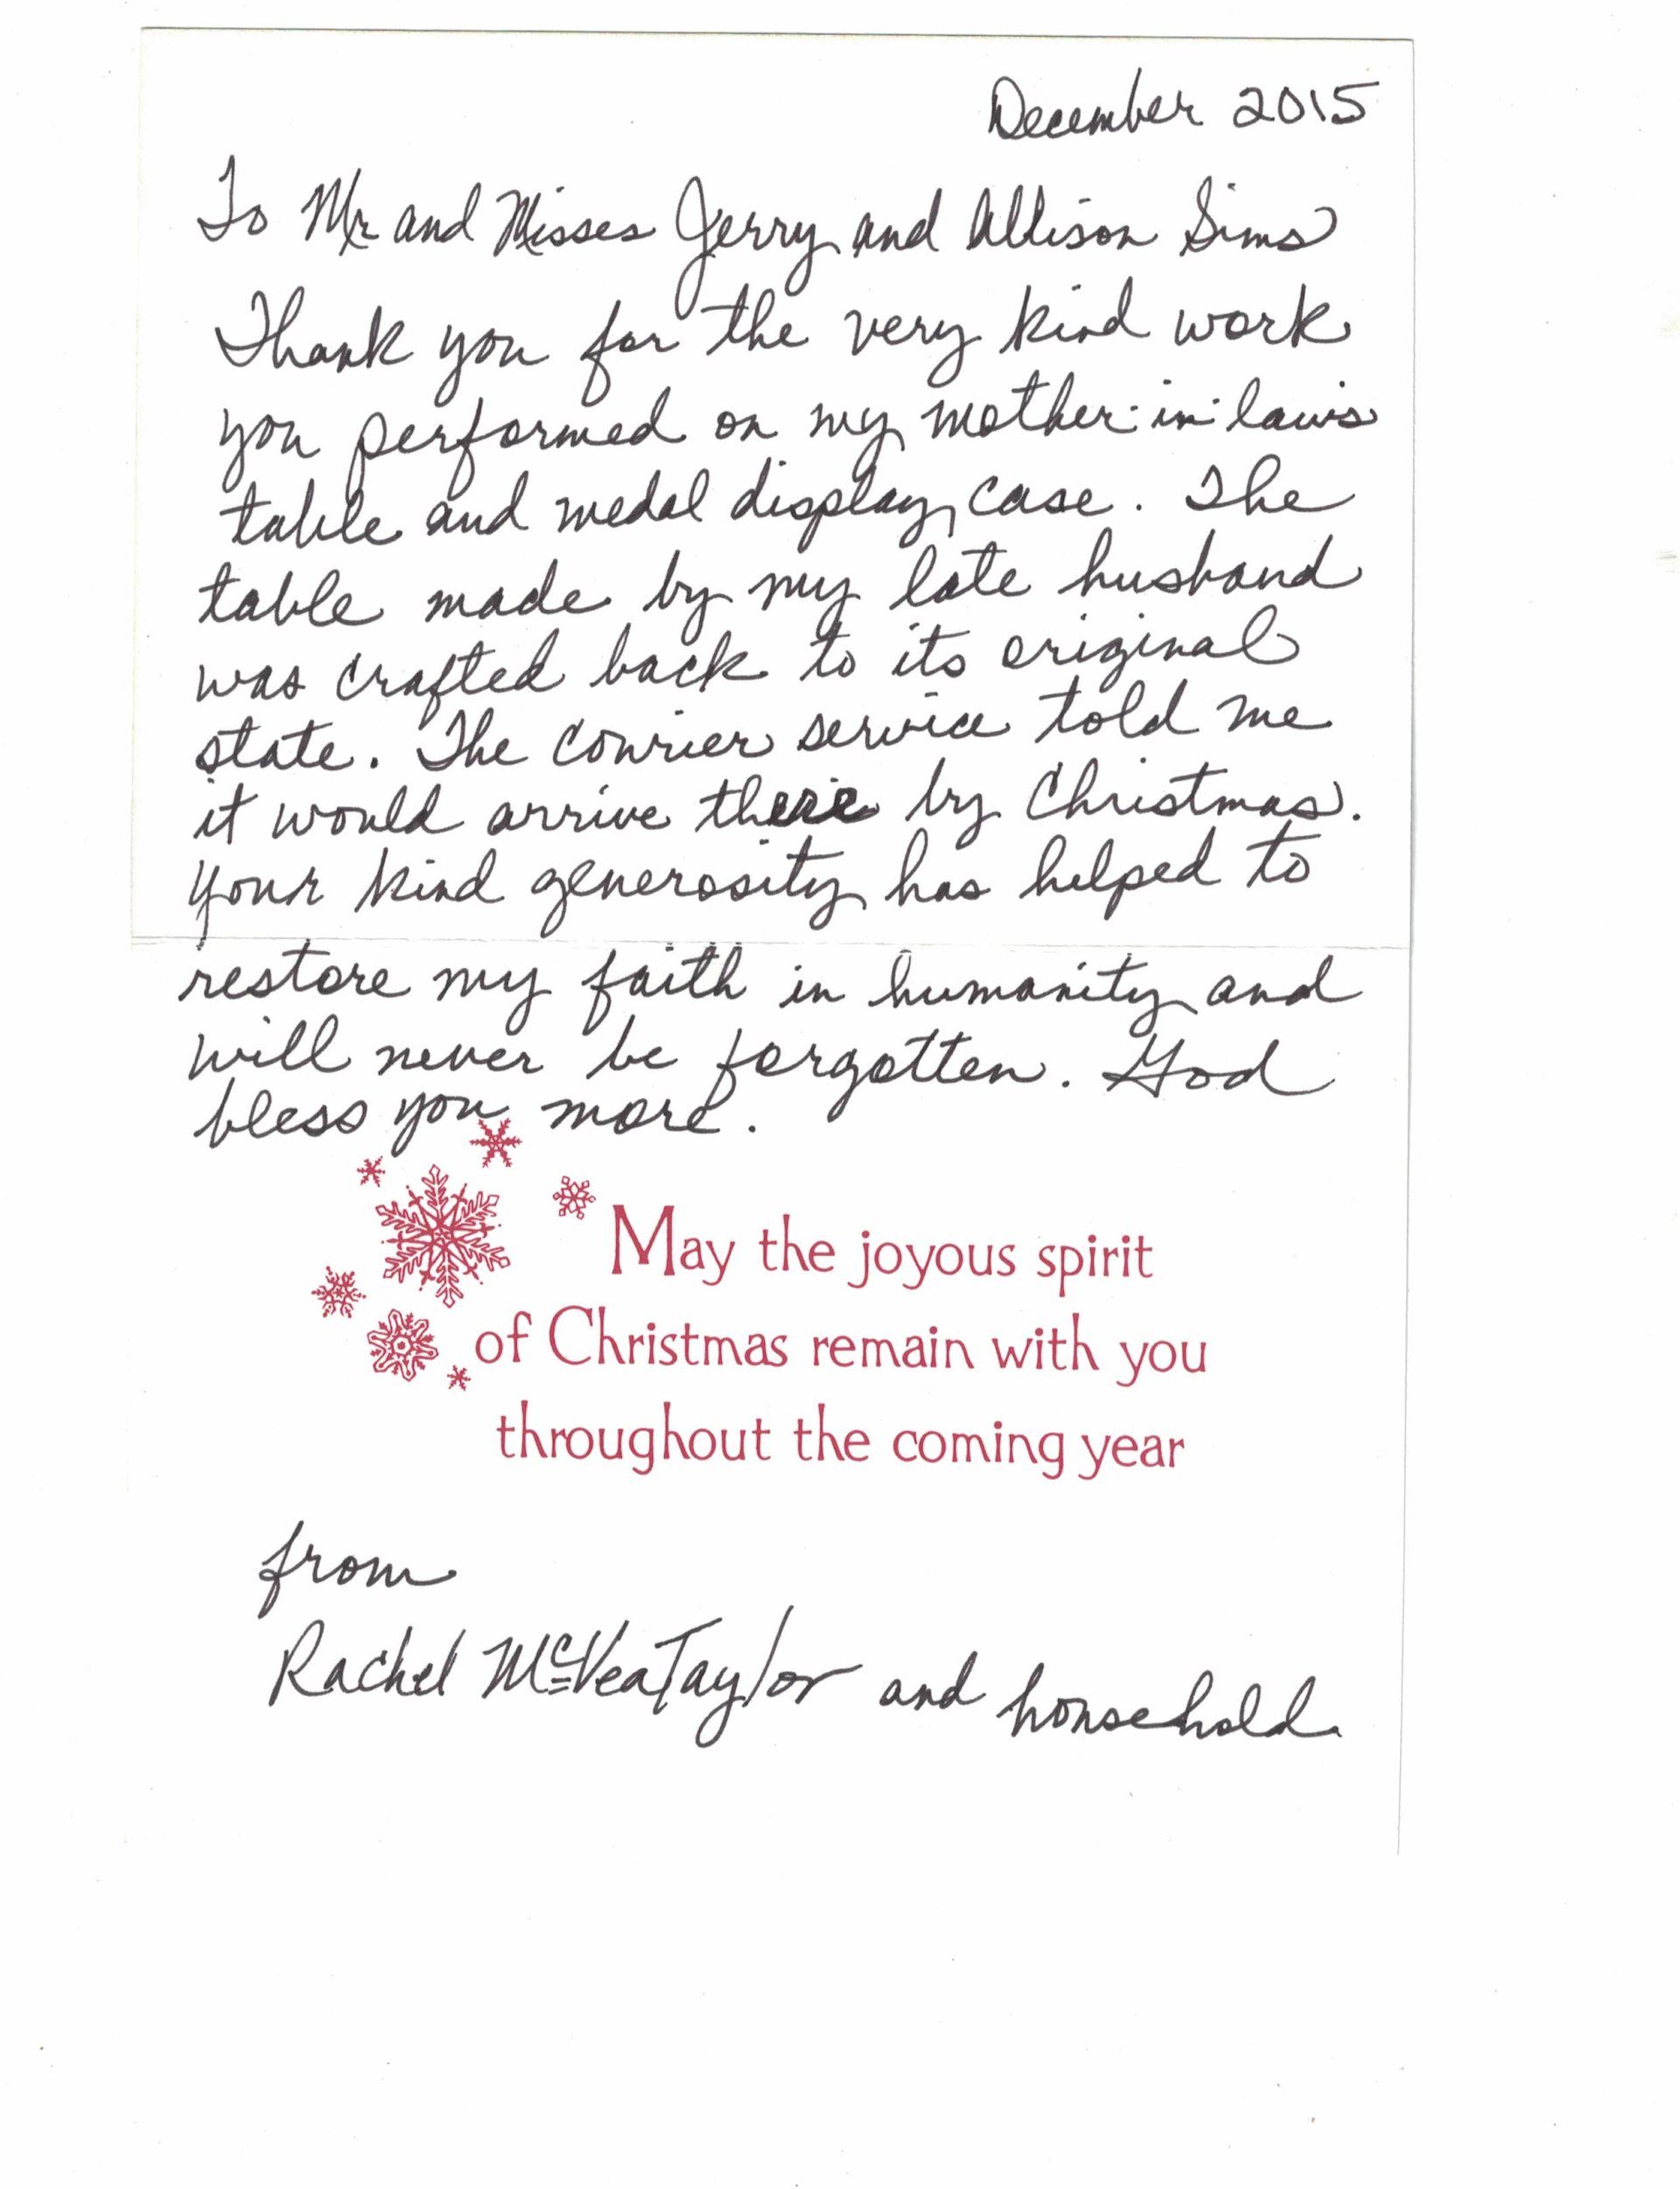 December 2015
To Mr and Misses Jerry and Allison Sims
Thank you for the very kind work
you performed on my mother-in-law's
table and medal display case. The
table made by my late husband
was crafted back to its original
state. The courier service told me
it would arrive there by Christmas.
Your kind generosity has helped to
restore my faith in humanity and
will never be forgotten. God
bless you more.
May the joyous spirit
of Christmas remain with you
throughout the coming year
from
Rachel McVeaTaylor and household